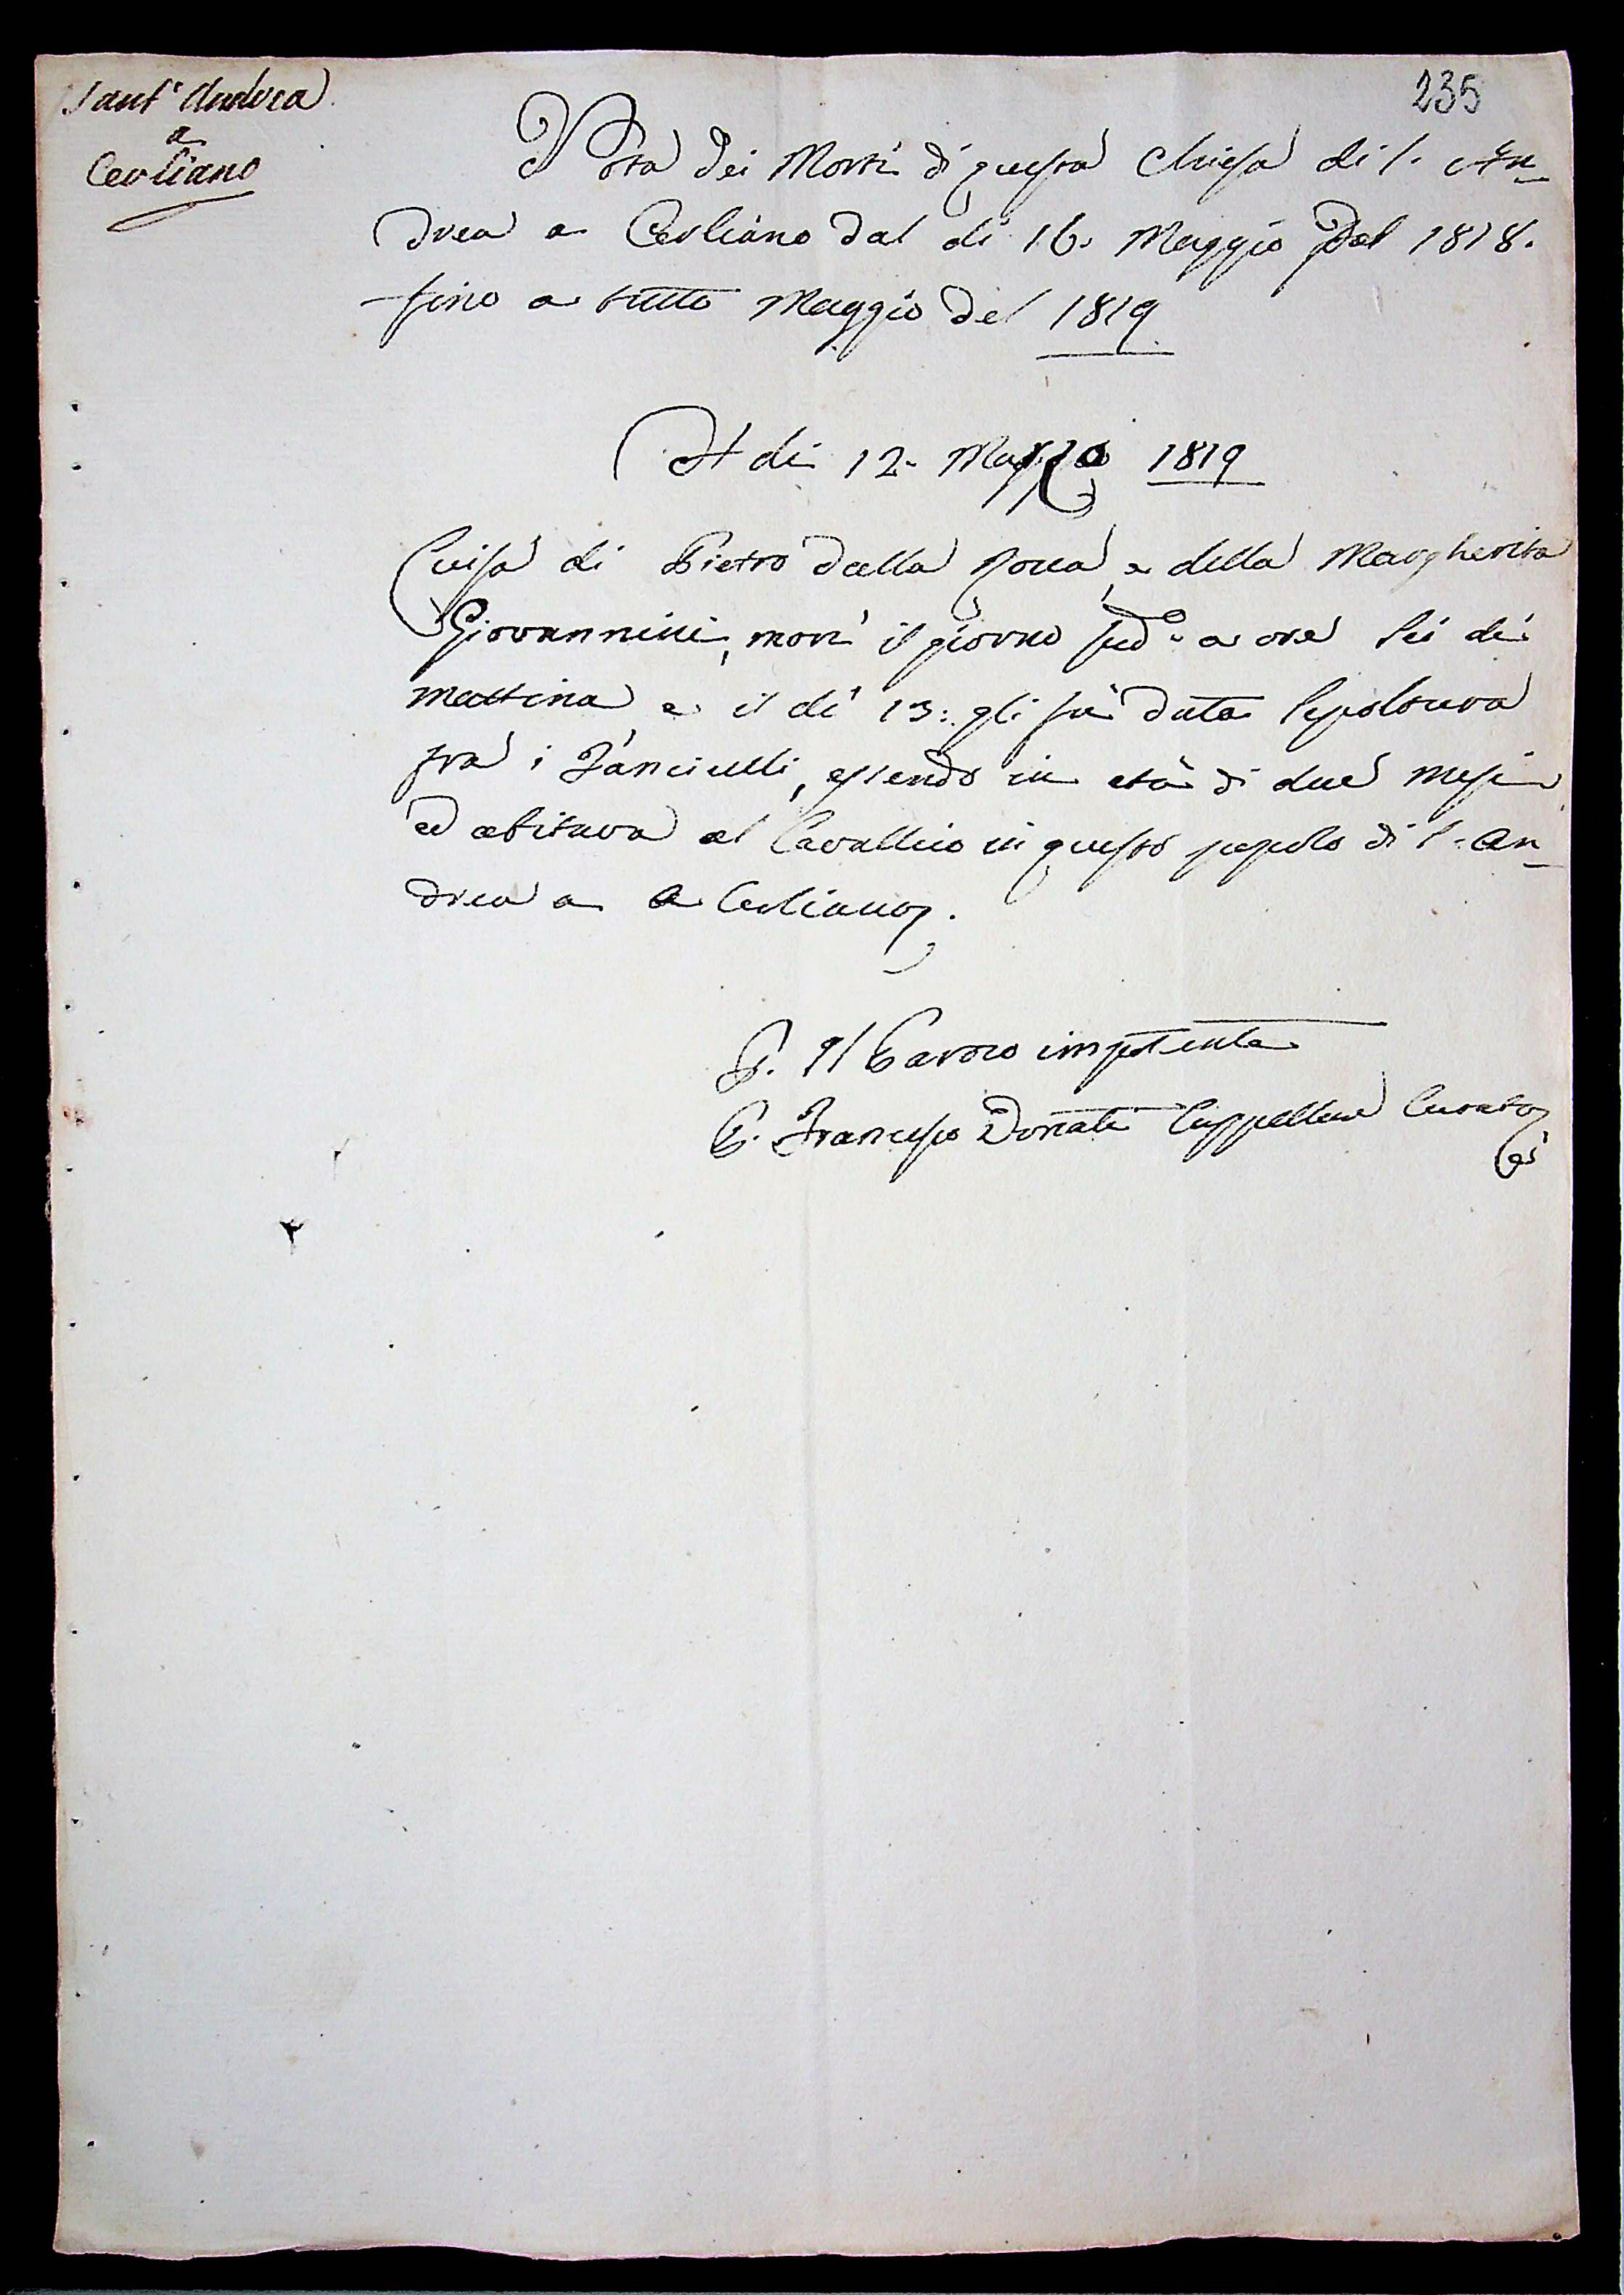 Sant' Andrea
a
Cerliano
235
Nota dei Morti di questa Chiesa di S. An-
drea a Cerliano dal di 16. Maggio del 1818.
fino a tutto Maggio del 1819
A di 12. Marzo 1819
Luisa di Pietro della Rocca, e della Margherita
Giovannini, morì il giorno sudo. a ore sei di
mattina e il dì 13: gli fù data Sepoltura
frà i Fanciulli, essendo in età di due mesi
ed abitava al in questo popolo di S. An-
drea a a Cerliano.
P. Il Paroco impotente
P. Francesco Donati Cappellano Curato